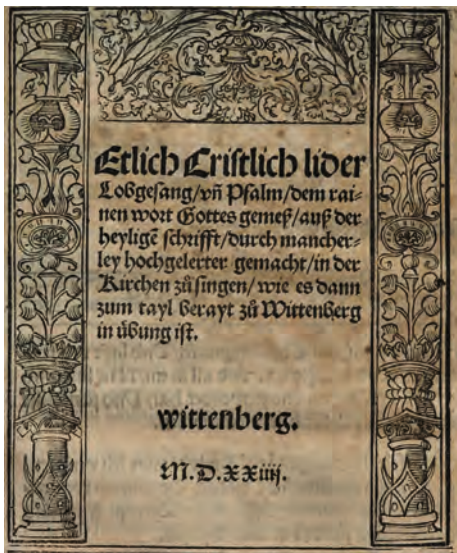 Etlich Cristlich lider
Lobgesang/vñ Psalm/dem rai-
nen wort Gottes gemeß/auß der
heyligẽ schrifft/durch mancher-
ley hochgelerter gemacht/in der
Kirchen zů singen/wie es dann
zum tayl berayt zů Wittenberg
in übung ist.
wittenberg.
M.D.XXiiij.